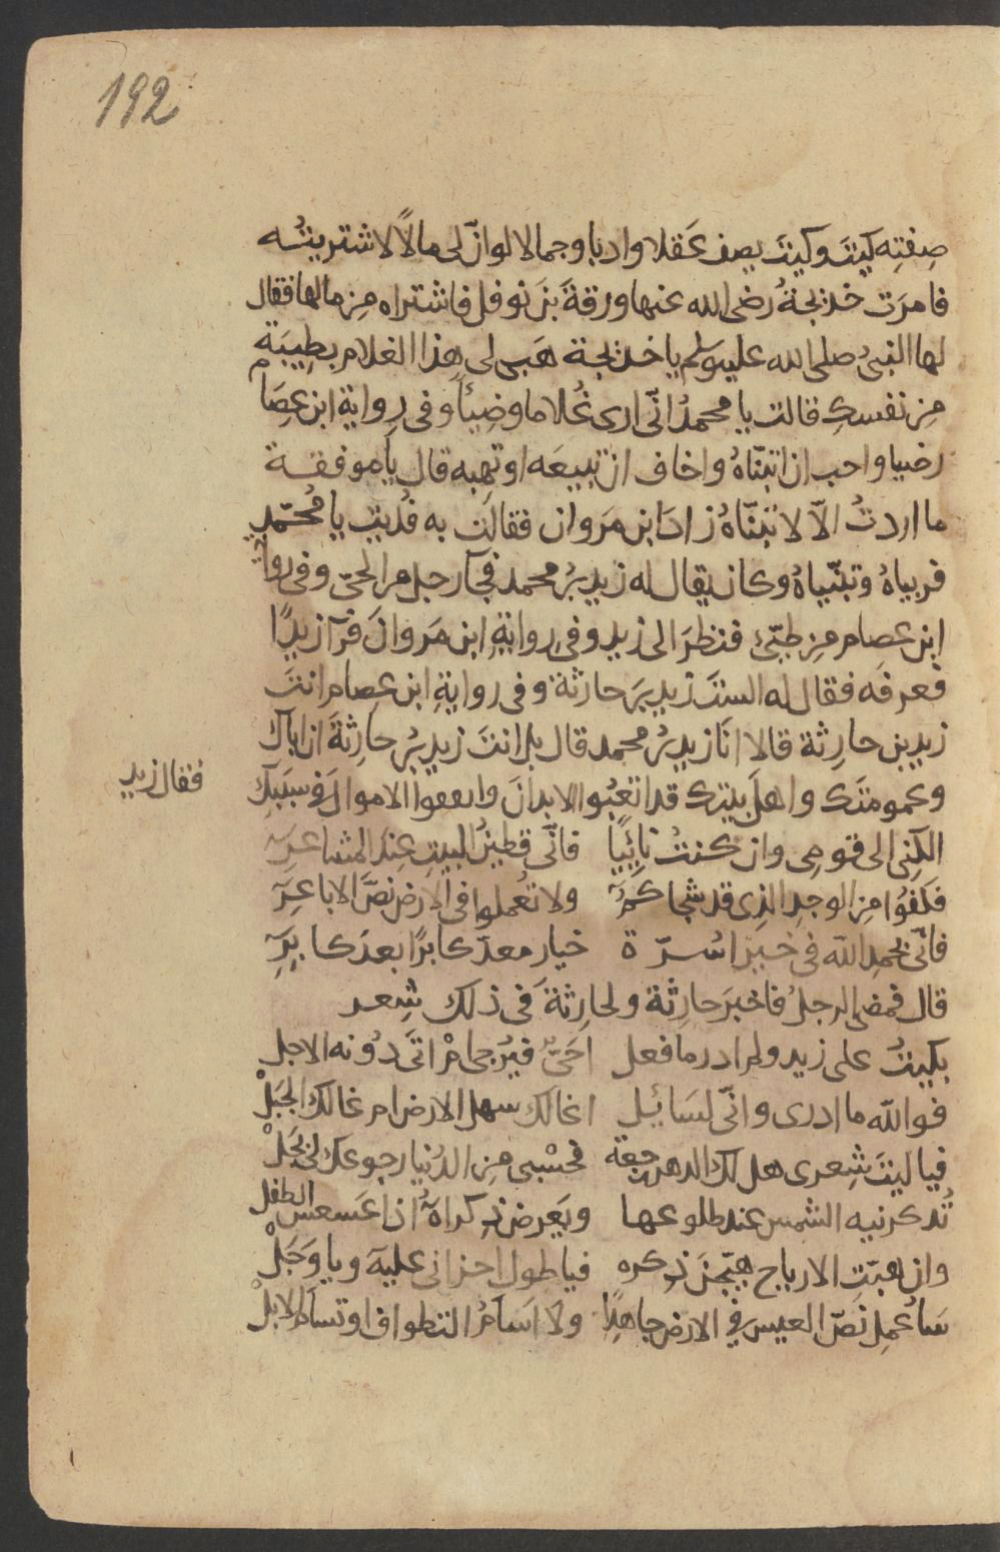 192
صِفتِه كَيْتَ وكَيْتَ يصف عَقلا وادبا وجمالا لو انّ لى مالًا لاشتريتُه
فامرَت خديجةُ رضى الله عنها ورقةَ بنَ نوفل فاشتراه مِن مالها فقال
لها النبىُ صلى الله عليه وسلم يا خديجة هَبى لى هذا الغلام بطِيبَةٍ
مِن نفسكِ قالت يا محمدُ انّى ارى غُلاما وضِيئاً وفى رِواية ابن عِصَام
رضيا واحب ان اتبنّاهُ واخاف ان تبيعَه او تهِبه قال يا موفقة
ما اردتُ الّا لاتبنّاهُ زادَ ابن مَروان فقالَت به فُديتَ يا مُحمّد
فربياهُ وتبنّياهُ وكان يقال له زيد بنُ محمد فجآ رجل من الحىّ وفى رواية
ابن عصام مِن طيّئ فنظرَ الى زيد وفى روايةِ ابن مَروانَ فرآ زيدًا
فعرفَه فقال له الستَ زيد بنَ حارثة وفى روايةِ ابن عصام انتَ
زيد بن حارِثة قال لا انَا زيد بنُ محمد قال بل انتَ زيد بنُ حارِثةَ ان اباك
وعمومتَك واهلَ بيتك قد اتعَبُوا الابدانَ وانفقوا الاموالَ فى سبَبِك
فقال زيد
الكِنِى الى قومِى وان كنتُ نائِيًا فانّى قطينُ البيتِ عِندَ المشاعرِ
فكفّوا مِن الوجدِ الذِى قد شجاكمُ ولا تُعملوا فى الارض نصَّ الاباعِرِ
فانّى بحمدِ الله فى خيرِ اسُرّة خيار معدّ كابرًا بعدَ كابرِ
قال فمضى الرجلُ فاخبرَ حارِثة ولحارِثةَ فى ذلك شِعر
بكيتُ على زيد ولم ادر ما فعل احَىٌّ فيُرجى امْ اتَى دُونه الاجل
فوالله ما ادرى وانّى لسَائِل اغالك سهل الارض ام غالك الجَبَلْ
فيا ليتَ شِعرى هل لك الدهرَ رجعة فحسْبى مِن الدُنيا رجوعك لى بجَلْ
تُذكرنيه الشمس عند طلوعها ويَعرِض ذِكراهُ اذا عَسعسَ الطفل
وان هبّتِ الارياح هيّجنَ ذِكره فيا طول احزانى عليه ويا وَجَلْ
سَاُعمِل نَصّ العيس فى الارض جاهِدًا ولا اسَامُ التطواف او تسام الابلْ